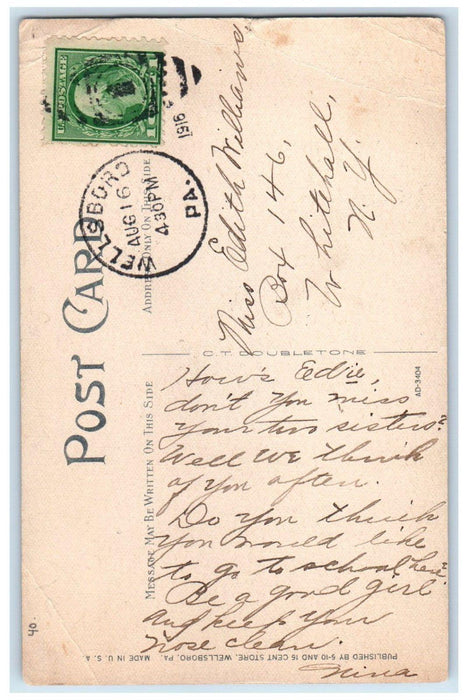 U.S. POSTAGE
1916
WELLSBORO
AUG 16
4-30PM
PA.
POST CARD
ADDRESS ONLY ON THIS SIDE
Miss Edith Williams
Box 146,
Whitehall,
N. Y.
C. T. DOUBLETONE
AD-3404
MESSAGE MAY BE WRITTEN ON THIS SIDE
How's Edie,
don't you miss
your two sisters?
Well we think
of you often.
Do you think
you would like
to go to school here?
Be a good girl
and keep your
nose clean.
Nina
PUBLISHED BY 5-10 AND 15 CENT STORE, WELLSBORO, PA. MADE IN U. S. A
40